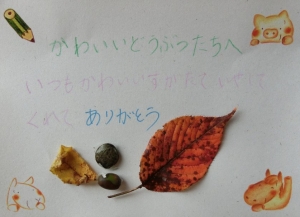 かわいいどうぶつたちへ
いつもかわいいすがたで、いやして
くれて ありがとう